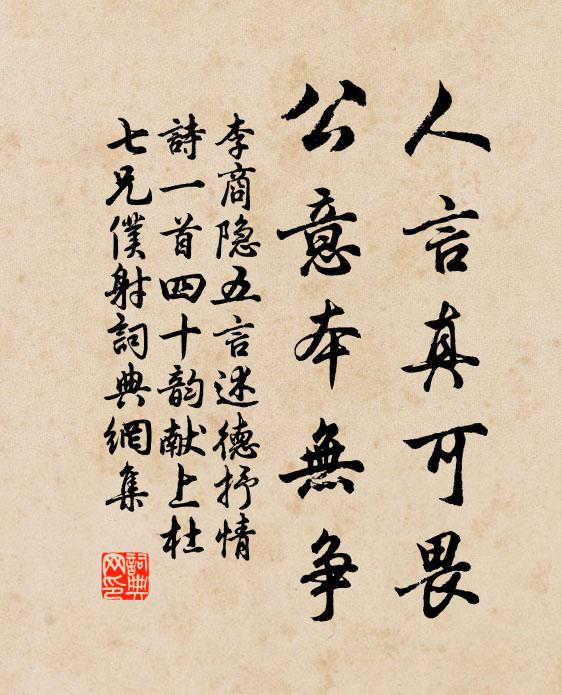 人言真可畏
公意本無争
李商隐五言述德抒情
詩一首四十韵献上杜
七兄僕射詞典網集
詞典網印